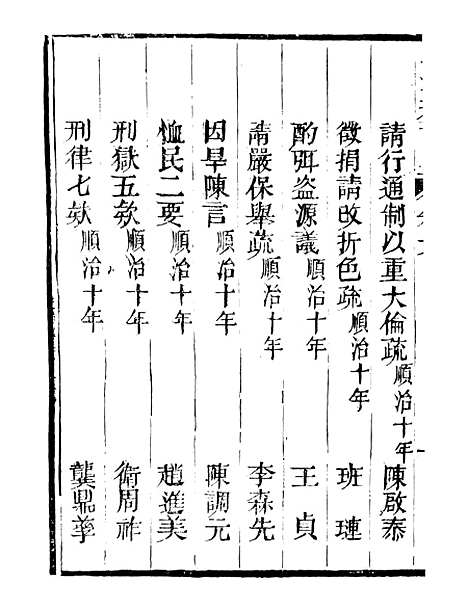 請行通制以重大倫疏 順治十年 陳啟泰
徵捐請改折色疏 順治十年 班璉
酌弭盜源議 順治十年 王貞
請嚴保舉疏 順治十年 李森先
因旱陳言 順治十年 陳調元
恤民二要 順治十年 趙進美
刑獄五欵 順治十年 衛周祚
刑律七欵 順治十年 龔鼎孳